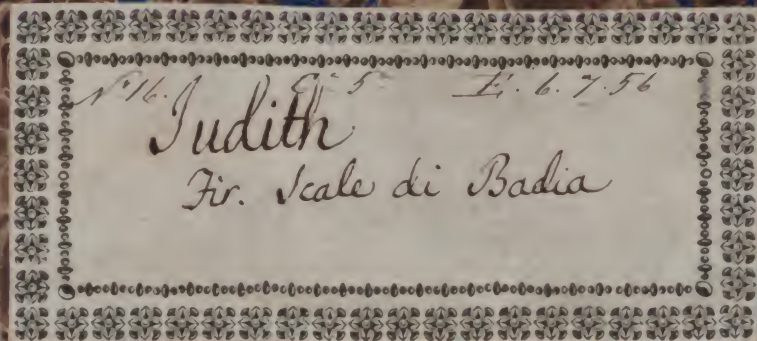 N.º 16. C.º 5 E. 6. 7. 56
Judith
Fir. Scale di Badia